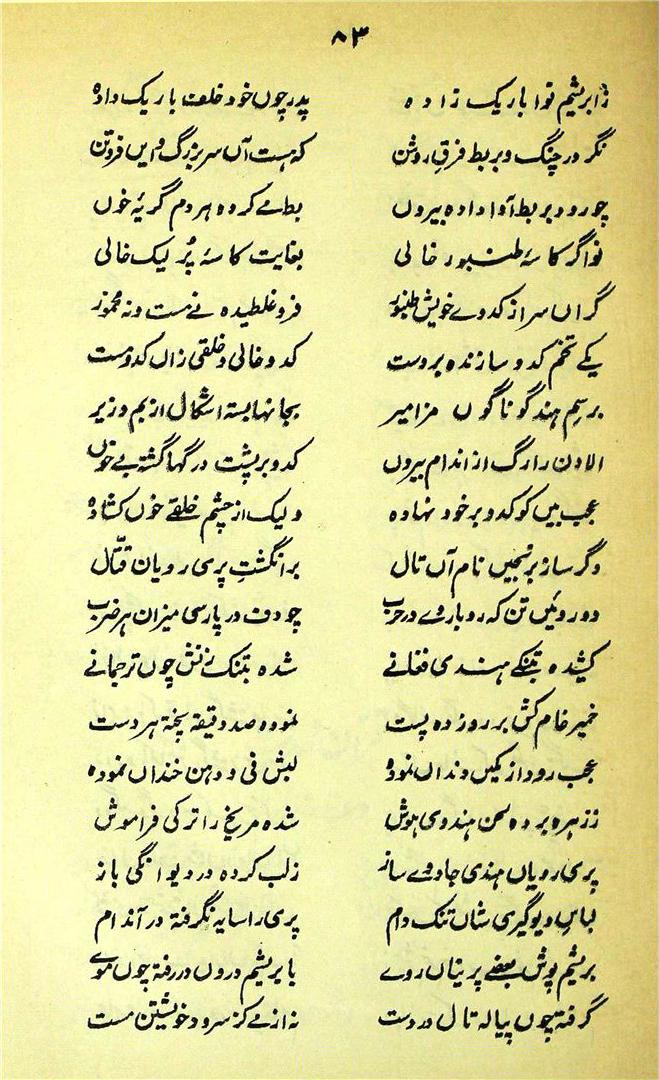 ۸۳
زابریشم نوا باریک زاده پدر چوں خود خلعت باریک داده
نگر در چنگ و بربط فرق روشن که هست آں سر بزرگ و ایں فروتن
چو رود بربط آوا داده بیروں بط مے کرده هر دم گریۂ خوں
نواگر کاسۂ طنبور خالی بغایت کاسۂ پُر لیک خالی
گراں سر از کدوے خویش طنبور فرو غلطیده نے مست و نه مخمور
یکے تخم کدو سازنده بر دست کدو خالی و خلقی زاں کدو مست
برسم هند گوناگوں مزامیر بجانها بسته اشکال از بم و زیر
الاون را رگ از اندام بیروں کدو بر پشت و رگها گشته بے خوں
عجب بیں کو کدو بر خود نهاده ولیک از چشم خلقے خوں کشاده
دگر ساز برنجیں نام آں تال بر انگشت پری رویان قتّال
دو روئیں تن که رو باروے در حرب چو دف در پارسی میزان هر ضرب
کشیده تنبکے هندی فغانے شده تنبک زنش چوں ترجمانے
خمیر خام کش بر روز ده پست نموده صد دقیقه پختۂ هر دست
عجب رود از کمیں دنداں نموده لبش فی و دهن خنداں نموده
ز زهره برده لحن هندوی هوش شده مریخ را ترکی فراموش
پری رویان هندی جادوے ساز ز لب کرده در دیوانگی باز
لباس دیوگیری شاں تنک دام پری را سایه نگرفته در آندام
بریشم پوش بعضے پرنیاں روے با بریشم دروں در رفته چوں موے
گرفته چوں پیاله تال در دست نه از مے کز سرود خویشتن مست